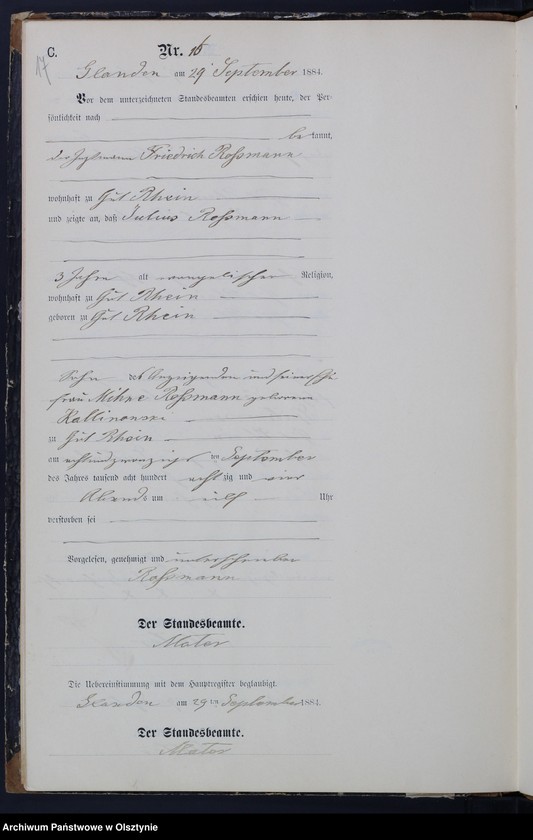 C. Nr. 16
17
Glanden am 29 September 1884.
Vor dem unterzeichneten Standesbeamten erschien heute, der Per-
sönlichkeit nach
bekannt,
der Friedrich Roßmann
wohnhaft zu Gut Rhein
und zeigte an, daß Julius Roßmann
3 Jahre alt evangelischer Religion,
wohnhaft zu Gut Rhein
geboren zu Gut Rhein
Sohn des Anzeigenden und seiner Ehe
frau Roßmann geborene
zu Gut Rhein
am achtundzwanzigsten September
des Jahres tausend acht hundert achtzig und vier
Abends um elf Uhr
verstorben sei
Vorgelesen, genehmigt und unterschrieben
Roßmann
Der Standesbeamte.
Die Uebereinstimmung mit dem Hauptregister beglaubigt.
Glanden am 29ten September 1884.
Der Standesbeamte.
Archiwum Państwowe w Olsztynie